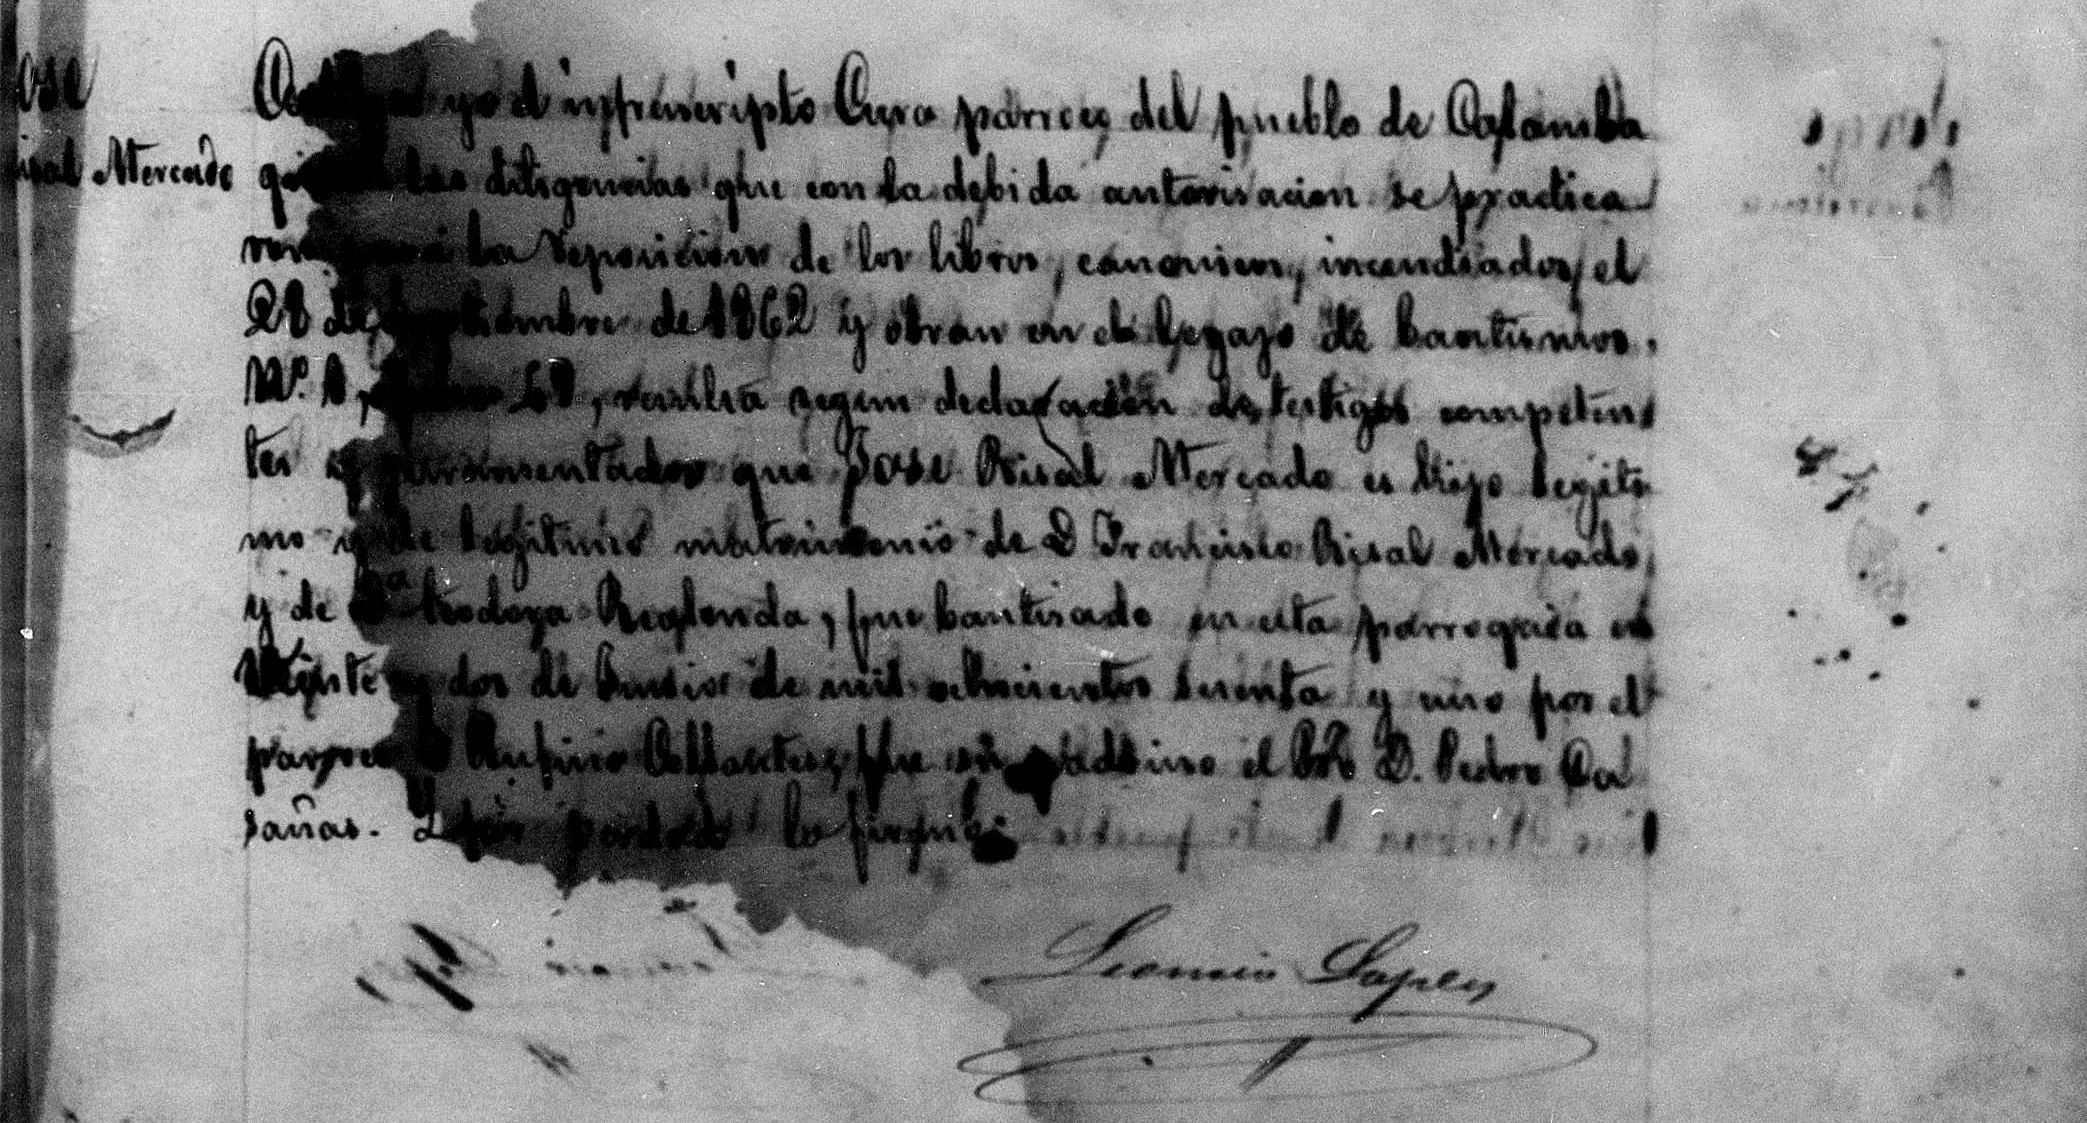 ose
isal Mercado
yo el infrascripto Cura parroco del pueblo de Calamba
que las diligencias que con la debida autorisacion se practica
ron para la reposicion de los libros, canonicos, incendiados el
28 de Septiembre de 1862 y obran en el legajo de bautismos,
Nº. 1, resulta segun declaración de testigos competen
tes y juramentados que Jose Risal Mercado es hijo legiti
mo y de legitimo matrimonio de D Francisco Risal Mercado
y de Dª Teodora Realonda, fue bautisado en esta parroquia en
Veinte y dos de Junio de mil ochocientos sesenta y uno por el
parroco D Rufino Collantes, fue su padrino el Pbo D. Pedro Ca
sañas. Y por verdad lo firmé.
Leoncio Lopez